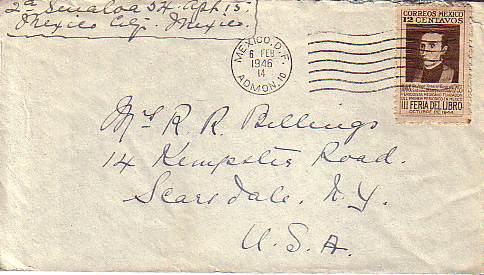 2a Sinaloa 54. Apt 15.
Mexico City. Mexico.
MEXICO, D.F.
6 FEB
1946
14
ADMON. 10
CORREOS MEXICO
12 CENTAVOS
III FERIA DEL LIBRO
OCTUBRE DE 1944
Mrs R. R. Billings
14 Kempster Road.
Scarsdale. N.Y.
U.S.A.